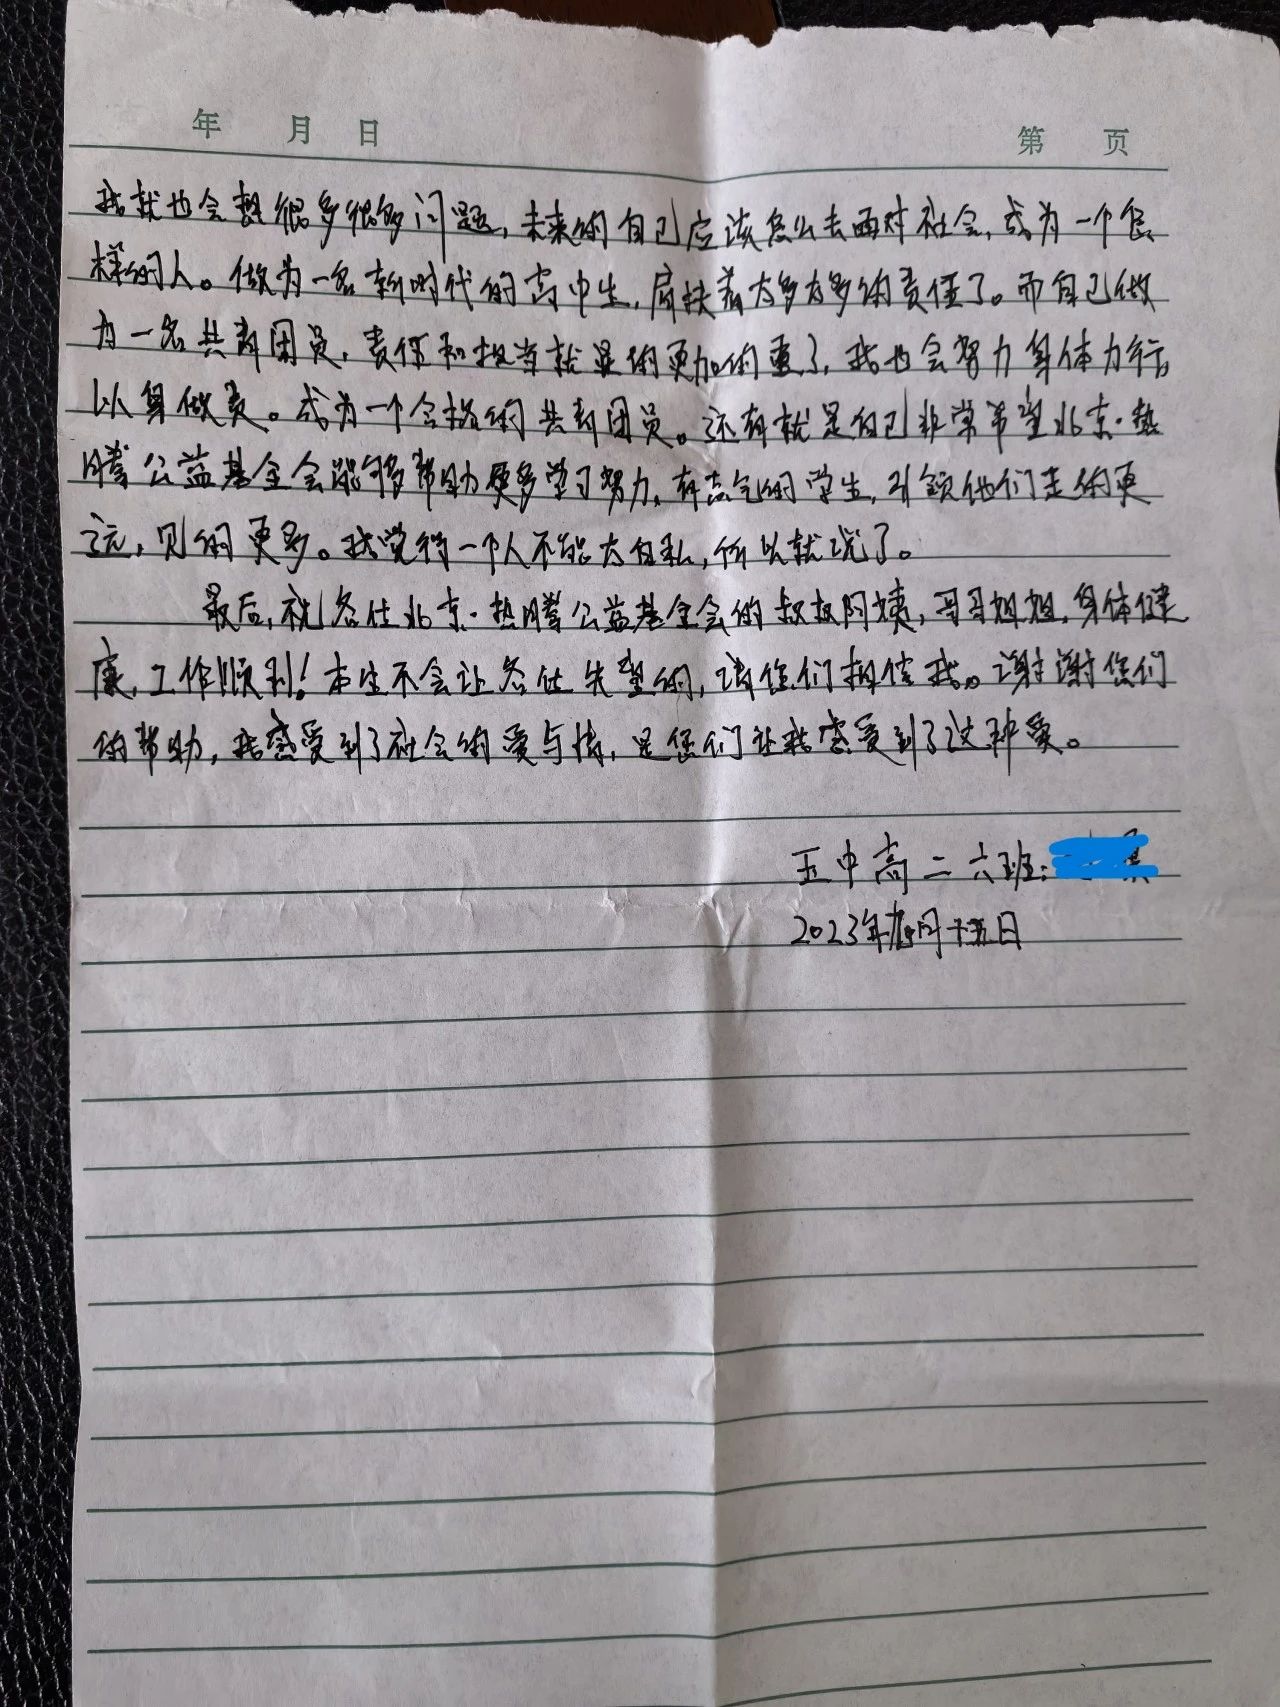 年 月 日 第 页
我就也会想很多很多问题,未来的自己应该怎么去面对社会,成为一个怎
样的人。做为一名新时代的高中生,肩扶着太多太多的责任了。而自己做
为一名共青团员,责任和担当就显的更加的重了,我也会努力身体力行,
以身做责。成为一个合格的共青团员。还有就是自己非常希望北京·热
腾公益基金会能够帮助更多学习努力,有志气的学生,引领他们走的更
远,见的更多。我觉得一个人不能太自私,所以就说了。
最后,祝各位北京·热腾公益基金会的叔叔阿姨,哥哥姐姐,身体健
康,工作顺利!本生不会让各位失望的,请您们相信我。谢谢您们
的帮助,我感受到了社会的爱与情,是您们让我感受到了这种爱。
五中高二六班:
2023年九月十五日